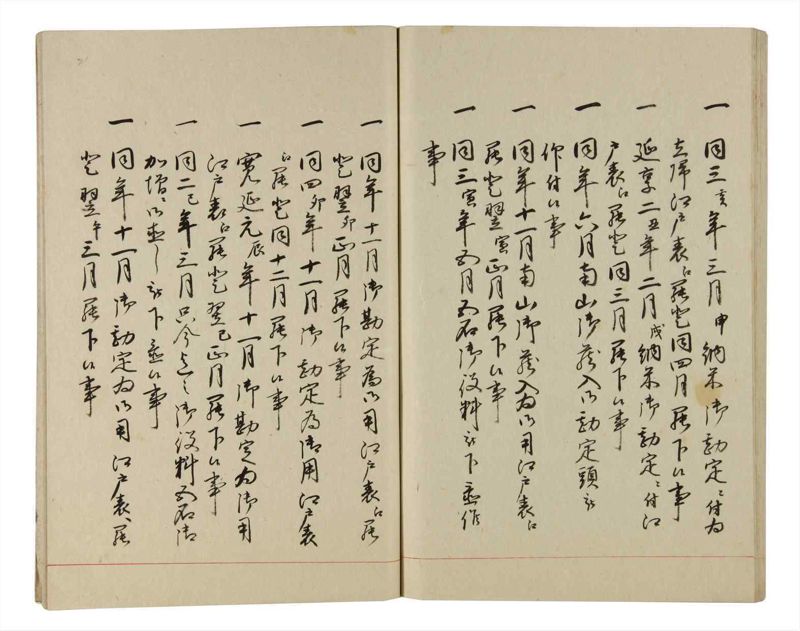 一 同三亥年三月申納米御勘定ニ付為
立帰江戸表江罷登同四月罷下候事
一 延享二丑年二月戌納米御勘定ニ付江
戸表江罷登同三月罷下候事
一 同年六月南山御蔵入御勘定頭被
作付候事
一 同年十一月南山御蔵入為御用江戸表江
罷登翌寅正月罷下候事
一 同三寅年五月五石御役料被下置作
事
一 同年十一月御勘定為御用江戸表江罷
登翌卯正月罷下候事
一 同四卯年十一月御勘定為御用江戸表
江罷登同十二月罷下候事
一 寛延元辰年十一月御勘定為御用
江戸表江罷登翌巳正月罷下候事
一 同二巳年三月只今迄之御役料五石御
加増ニ御直し被下置候事
一 同年十一月御勘定為御用江戸表江罷
登翌午三月罷下候事